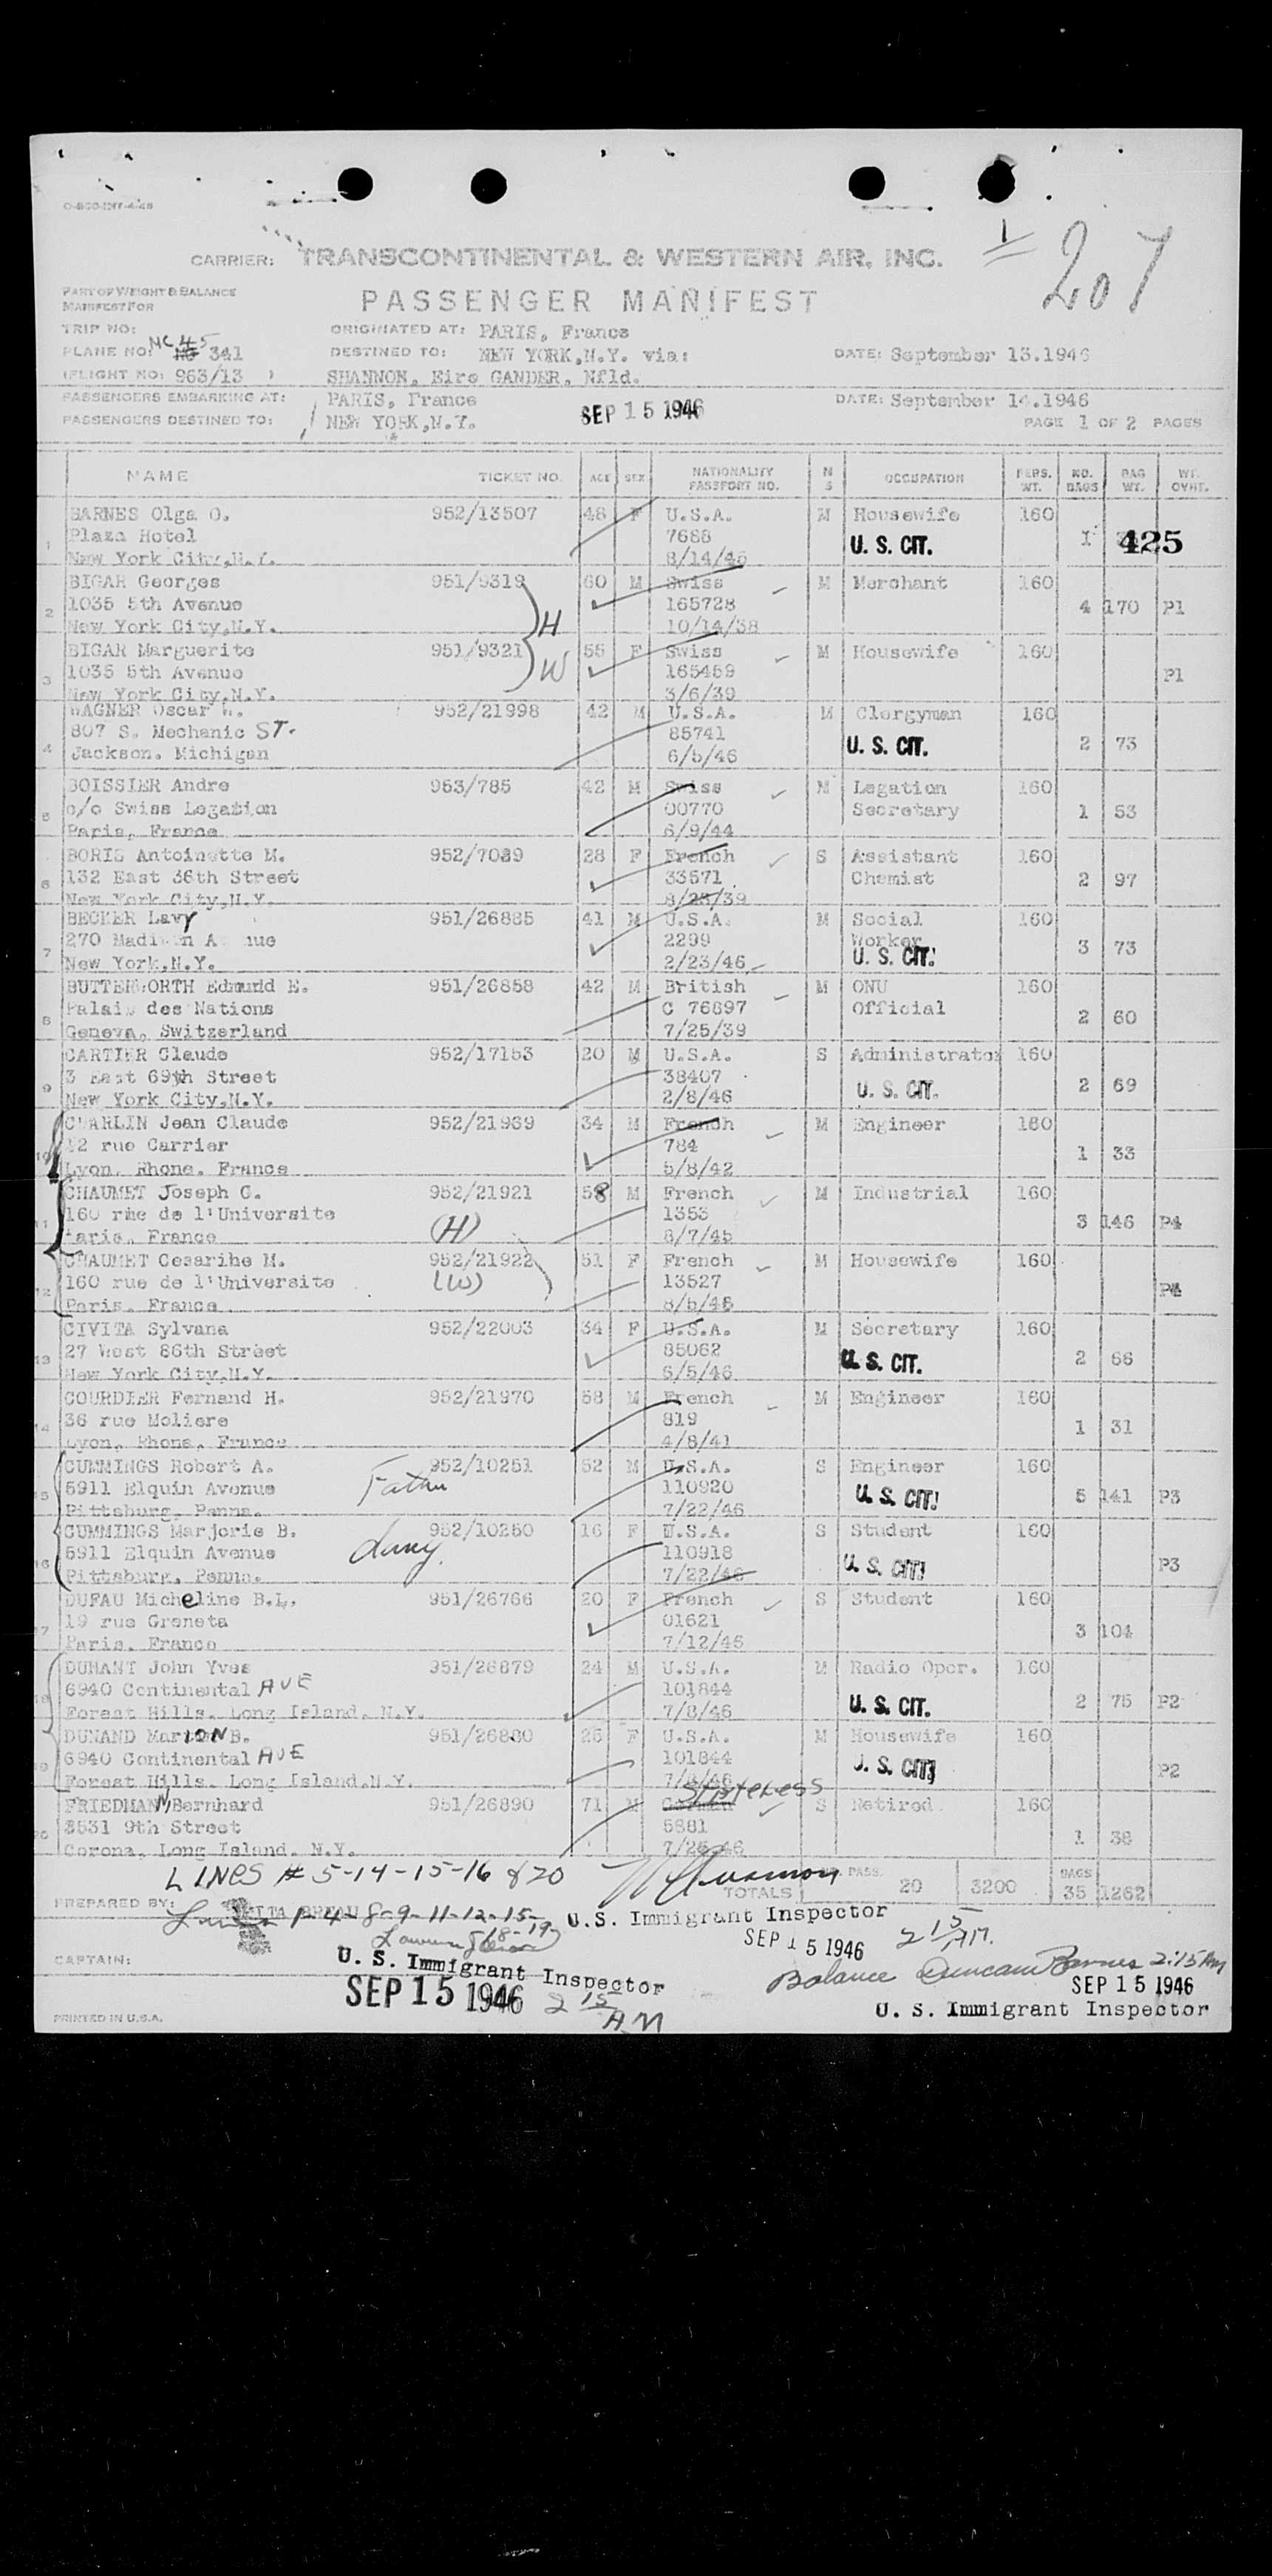 O-800-INT-4-46
1
207
CARRIER: TRANSCONTINENTAL & WESTERN AIR, INC.
PART OF WEIGHT & BALANCE
MANIFEST FOR
PASSENGER MANIFEST
TRIP NO:
ORIGINATED AT: PARIS, France
PLANE NO: NC 45 341
DESTINED TO: NEW YORK,N.Y. via:
DATE: September 13.1946
(FLIGHT NO: 963/13 )
SHANNON, Eire GANDER, Nfld.
PASSENGERS EMBARKING AT: PARIS, France
DATE: September 14.1946
PASSENGERS DESTINED TO: NEW YORK,N.Y.
SEP 15 1946
PAGE 1 OF 2 PAGES
NAME TICKET NO. AGE SEX NATIONALITY PASSPORT NO. M S OCCUPATION PERS. WT. NO. BAGS BAG WT. WT. OVHT.
BARNES Olga O. 952/13507 48 F U.S.A. M Housewife 160
1 Plaza Hotel 7688 U. S. CIT. 1 425
New York City,N.Y. 8/14/46
BIGAR Georges 951/9319 60 M Swiss M Merchant 160
2 1035 5th Avenue 165728 4 170 P1
New York City,N.Y. H 10/14/38
BIGAR Marguerite 951/9321 55 F Swiss M Housewife 160
3 1035 5th Avenue W 165459 P1
New York City,N.Y. 3/6/39
WAGNER Oscar W. 952/21998 42 M U.S.A. M Clergyman 160
807 S. Mechanic ST. 85741
4 Jackson. Michigan 6/5/46 U. S. CIT. 2 73
BOISSIER Andre 953/785 42 M Swiss M Legation 160
5 c/o Swiss Legation 00770 Secretary 1 53
Paris, France 6/9/44
BORIS Antoinette M. 952/7039 28 F French S Assistant 160
6 132 East 36th Street 33571 Chemist 2 97
New York City,N.Y. 8/25/39
BECKER Lavy 951/26885 41 M U.S.A. M Social 160
7 270 Madi n A nue 2299 Worker 3 73
New York,N.Y. 2/23/46 U. S. CIT.
BUTTERWORTH Edmund E. 951/26858 42 M British M ONU 160
8 Palais des Nations C 76697 Official 2 60
Geneva, Switzerland 7/25/39
CARTIER Claude 952/17153 20 M U.S.A. S Administrator 160
9 3 East 69th Street 38407 U. S. CIT. 2 69
New York City,N.Y. 2/8/46
CHARLIN Jean Claude 952/21969 34 M French M Engineer 160
10 12 rue Carrier 784 1 33
Lyon. Rhone. France 5/8/42
CHAUMET Joseph C. 952/21921 58 M French M Industrial 160
11 160 rue de l'Universite (H) 1353 3 146 P4
Paris. France 8/7/45
CHAUMET Cesarihe M. 952/21922 51 F French M Housewife 160
12 160 rue de l'Universite (W) 13527 P4
Paris. France 8/5/46
CIVITA Sylvana 952/22003 34 F U.S.A. M Secretary 160
13 27 West 86th Street 85062 U. S. CIT. 2 66
New York City,N.Y. 6/5/46
COURDIER Fernand H. 952/21970 58 M French M Engineer 160
14 36 rue Moliere 819 1 31
Lyon, Rhone, France 4/8/41
CUMMINGS Robert A. 952/10251 52 M U.S.A. S Engineer 160
15 5911 Elquin Avenue Father 110920 U. S. CIT. 5 141 P3
Pittsburg, Penna. 7/22/46
CUMMINGS Marjorie B. 952/10250 16 F U.S.A. S Student 160
16 5911 Elquin Avenue 110918 U. S. CIT. P3
Pittsburg, Penna. 7/22/46
DUFAU Micheline B.L. 951/26766 20 F French S Student 160
17 19 rue Greneta 01621 3 104
Paris. France 7/12/46
DUNANT John Yves 951/26879 24 M U.S.A. M Radio Oper. 160
18 6940 Continental AVE 101844 U. S. CIT. 2 75 P2
Forest Hills. Long Island, N.Y. 7/8/46
DUNAND MarION B. 951/26880 25 F U.S.A. M Housewife 160
19 6940 Continental AVE 101844 U. S. CIT. P2
Forest Hills. Long Island,N.Y. 7/8/46
FRIEDMANN Bernhard 951/26890 71 M German STATELESS S Retired 160
20 3531 9th Street 5881 1 38
Corona, Long Island. N.Y. 7/25/46
LINES # 5-14-15-16 & 20
TOTALS PASS. 20 3200 BAGS 35 1262
PREPARED BY:
1-4-8-9-11-12-15-
18-19
U.S. Immigrant Inspector
SEP 15 1946 2 15 AM.
CAPTAIN:
U. S. Immigrant Inspector
SEP 15 1946 2 15 AM
Balance Duncan Barnes 2:15 AM
SEP 15 1946
U. S. Immigrant Inspector
PRINTED IN U.S.A.